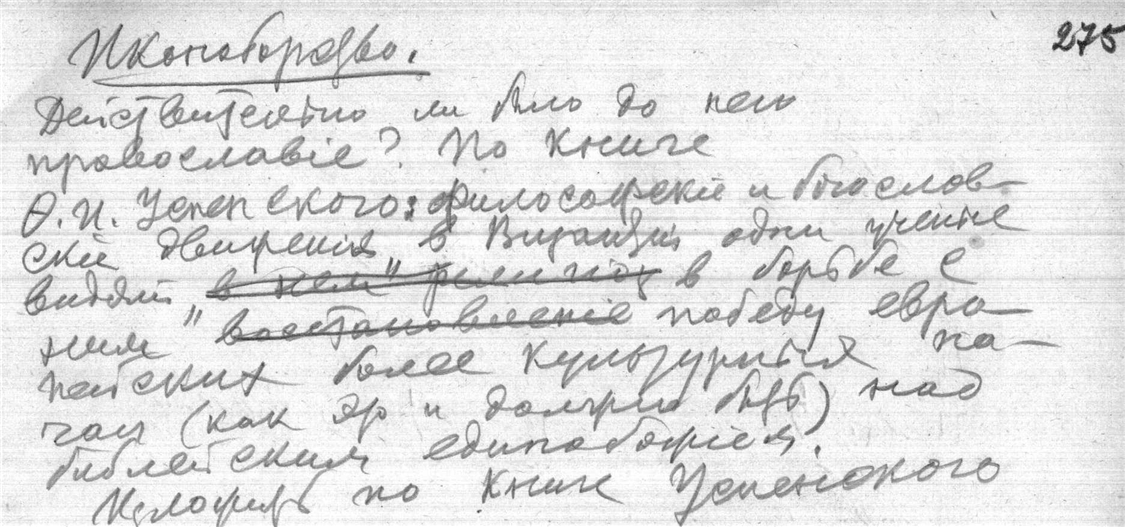 275
Иконоборство.
Действительно ли было до него
православіе? По книге
Ѳ. И. Успенского: философскіе и богослов-
скіе движения в Византіи одни ученые
видят в нем " религіоз в борьбе с
ним " восстановленіе победу евро-
пейских более культурных на-
чал (как это и должно быть) над
библейским единобожіем.
Изложить по книге Успенского